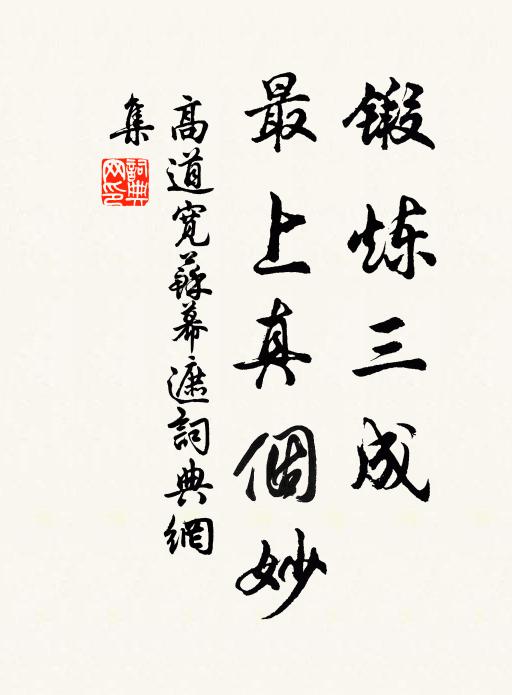 鍛炼三成
最上真個妙
高道寬蘇幕遮詞典網
集
詞典網印